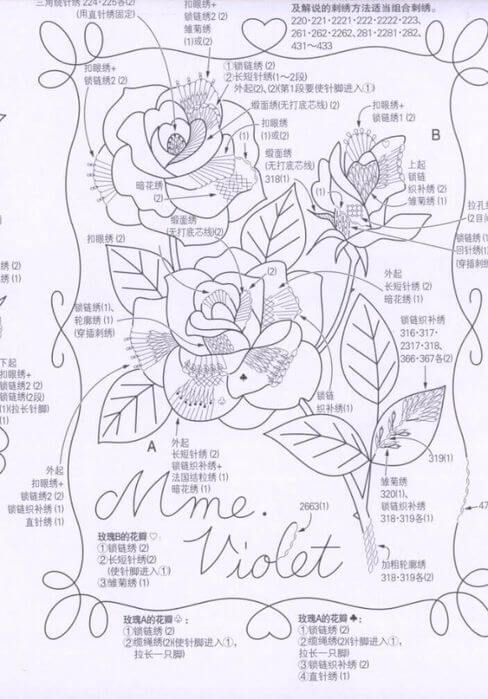 三角绕针绣 224·225各(2)
(用直针绣固定)
扣眼绣+
锁链绣2 (2)
雏菊绣
(1)或(2)
及解说的刺绣方法适当组合刺绣。
220·221·2221·222·2222·223、
261·262·2262、281·2281·282、
431~433
扣眼绣+
锁链绣2 (2)
①锁链绣 (2)
②长短针绣(1~2段)
外起(2)、(2)(第1段要使针脚进入①)
缎面绣(无打底芯线) (2)
扣眼绣
(1)或(2)
(1)
缎面绣
(无打底芯线)
318(1)
扣眼绣+
锁链绣1 (2)
B
上起
锁链
织补绣 (2)
雏菊绣 (1)
(1)
暗花绣
(2)
缎面绣
(无打底芯线)(2)
扣眼绣 (2)
(2)
外起
长短针绣 (2)
暗花绣 (1)
回针绣(1)
(穿插刺绣)
锁链绣(1)、
轮廓绣 (1)
(穿插刺绣)
锁链织补绣
316·317·
2317·318、
366·367各(2)
下起
扣眼绣+
锁链绣2 (2)
锁链绣(2段)
(1)(拉长针脚)
(1)
锁链
织补绣(1)
319(1)
A
外起
长短针绣 (2)
锁链织补绣+
法国结粒绣 (1)
暗花绣 (1)
外起
扣眼绣+
锁链绣2 (2)
锁链织补绣 (1)
直针绣 (1)
雏菊绣
320(1)、
锁链织补绣
318·319各(1)
2663(1)
47
Mme.
Violet
加粗轮廓绣
318·319各(2)
玫瑰B的花瓣♡:
①锁链绣 (2)
②长短针绣(2)
(使针脚进入①)
③雏菊绣 (1)
玫瑰A的花瓣♧:
①锁链绣 (2)
②缆绳绣(2)(使针脚进入①,
拉长一只脚)
玫瑰A的花瓣♣:
①锁链绣 (2)
②缆绳绣(2)(针脚进入①,
拉长一只脚)
③锁链织补绣(2)
④直针绣(1)